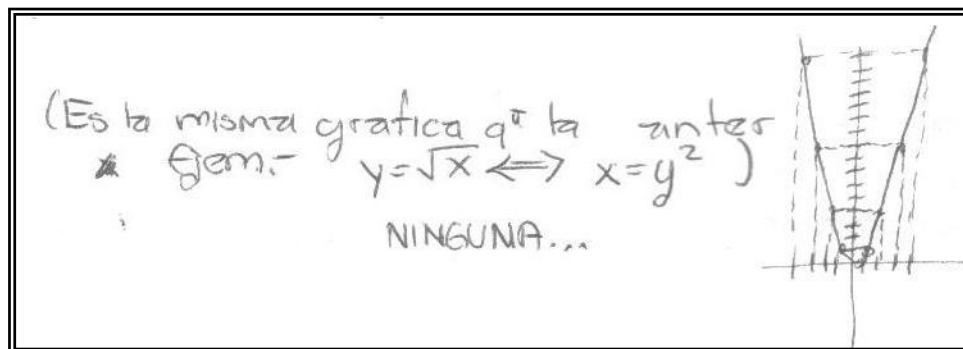 (Es la misma grafica q' la anter
Ejem:- y=√x ⟺ x=y² )
NINGUNA...